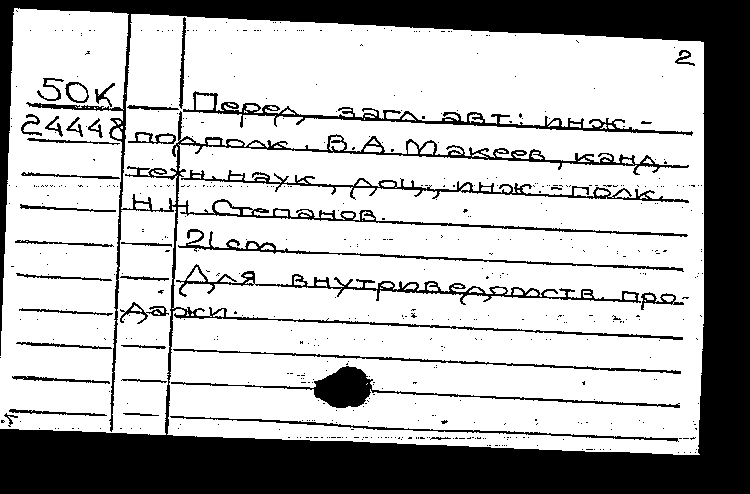 2
50К Перед загл. авт.: инж.-
24448 подполк. В.А. Макеев, канд.
техн. наук, доц., инж.-полк.
Н.Н. Степанов.
21 cm.
Для внутриведомств. про-
дажи.